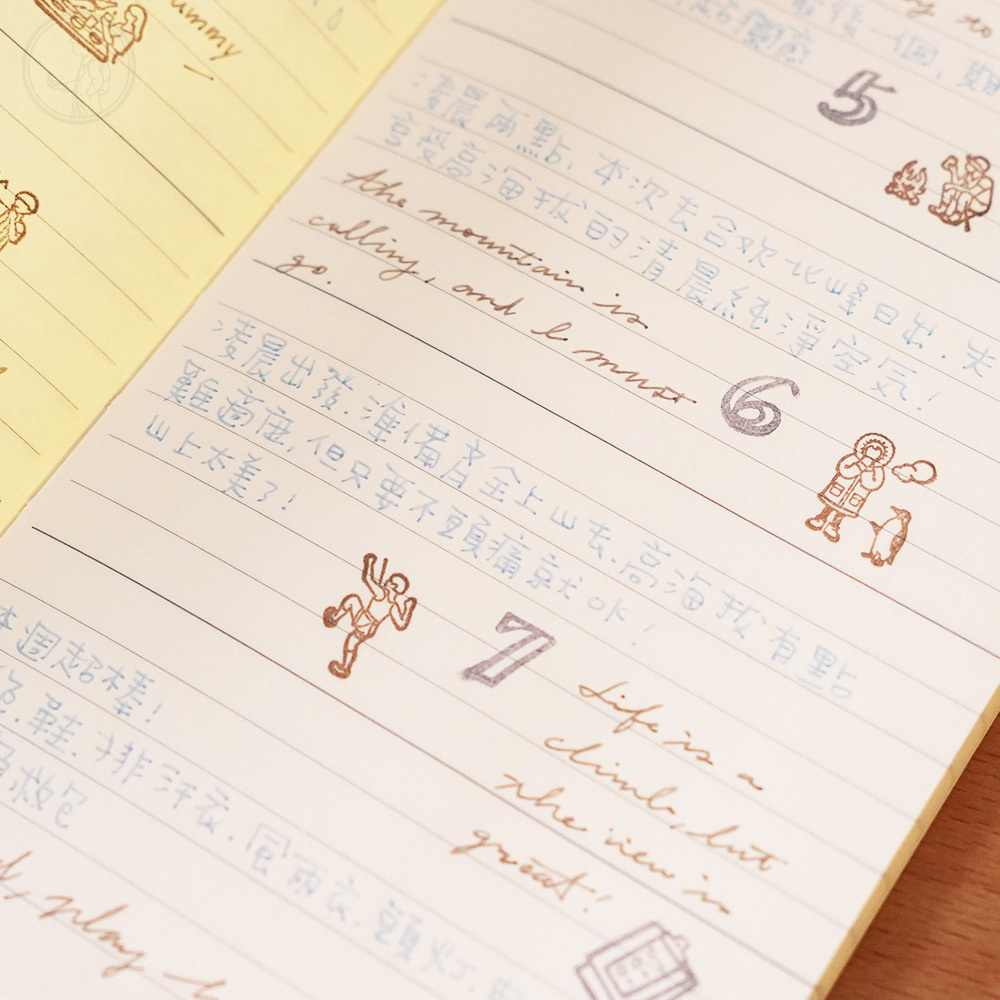 ummy
5
凌晨兩點，本次去合欢北峰日出，先
享受高海拔的清晨純淨空氣！
the mountain is
calling, and I must
go.
6
凌晨出發，準備齊全上山去，高海拔有點
難適應，但只要不頭痛就OK！
山上太美了！
7
Life is a
climb, but
the view is
great!
本週超棒！
鞋，排汗衣，風雨衣，頭灯，
救包
play